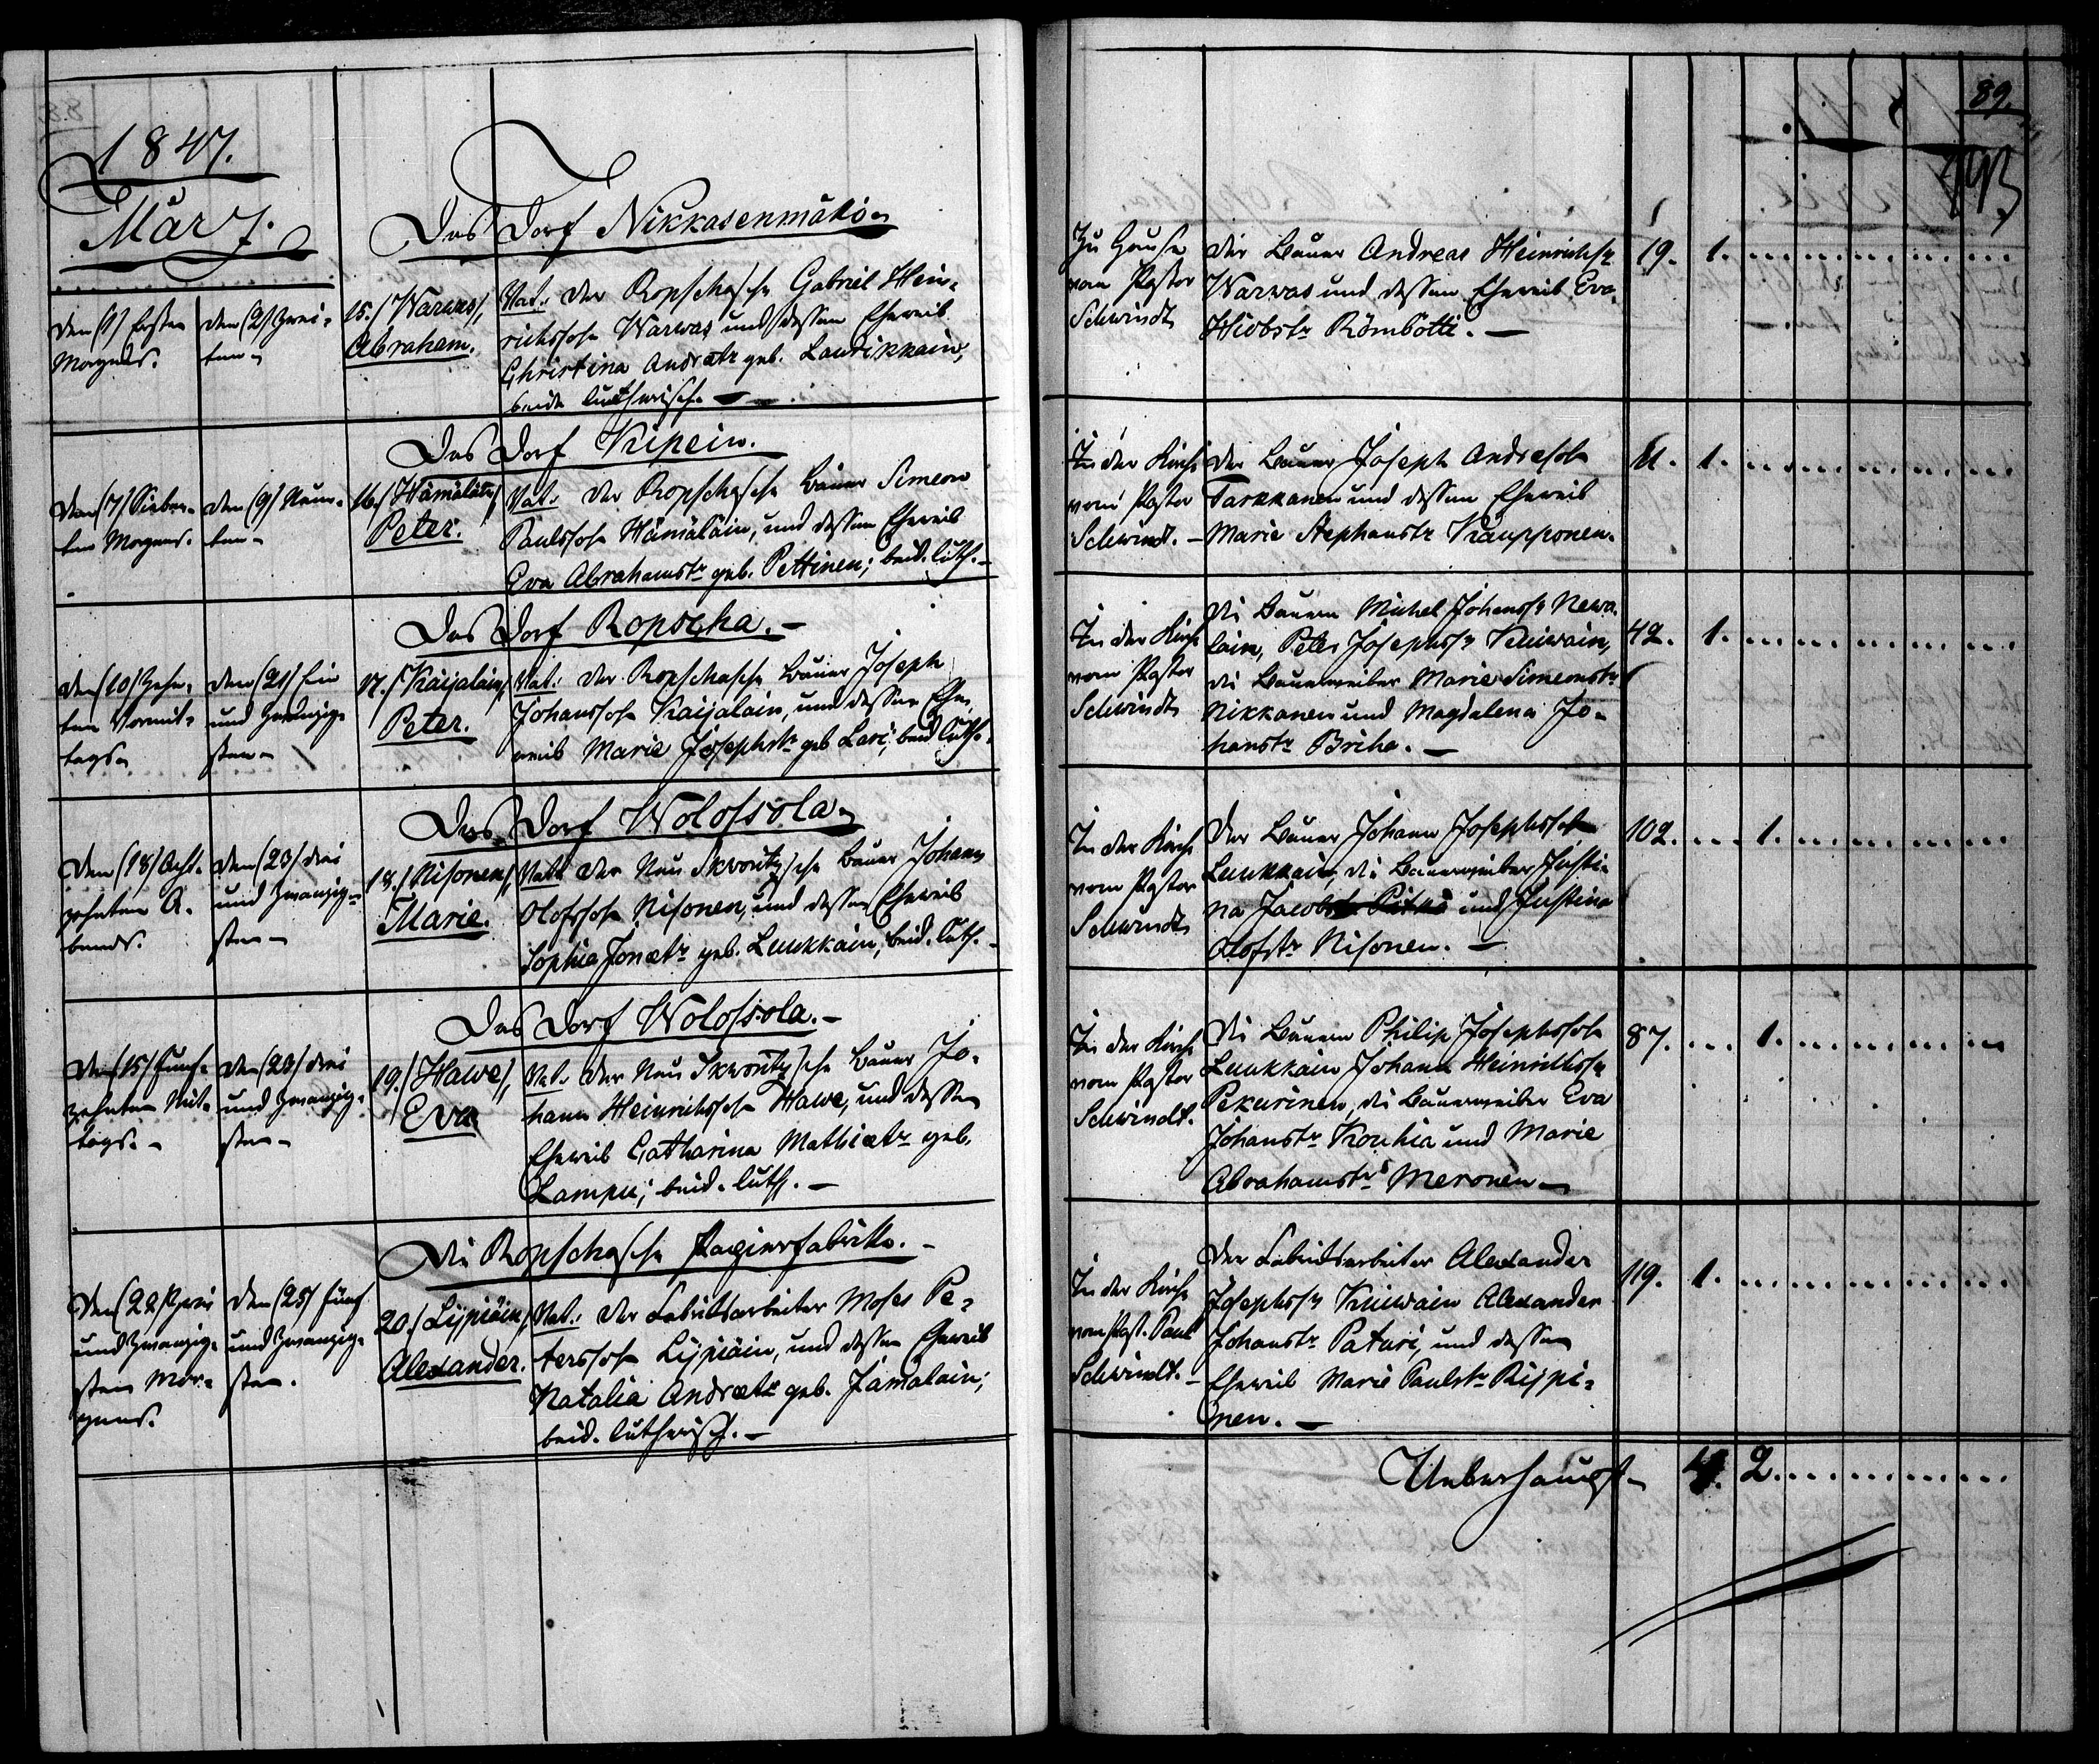 1847.
März.
Das Dorf Nikkasenmäki
den (1) Ersten
Morgens.
den (2) Zwei-
ten
15. (Warwas),
Abraham.
Vat. der Ropschasche Gabriel Hein-
richssohn Warwas und dessen Eheweib
Christina Andreætr geb. Laurikkain,
beide lutherisch.
Das Dorf Kipein.
Den (7) Sieben-
ten Morgens.
den (9) Neun-
ten
16. (Hämäläin)
Peter.
Vat. der Ropschasche Bauer Simeon
Paulssohn Hämäläin, und dessen Eheweib
Eva Abrahamstr geb. Pettinen; beid. luth.
Das Dorf Ropscha.
den (10) Zehn-
ten Vormit-
tags
den (21) Ein
und Zwanzig-
sten
17. (Kaijalain)
Peter.
Vat. der Ropschasche Bauer Joseph
Johanssohn Kaijalain, und dessen Ehe-
weib Marie Josephstr geb. Lari; beid luth.
Das Dorf Wolossola
Den (18) Acht-
zehnten A-
bends.
den (23) drei
und Zwanzig-
sten
18. (Nisonen),
Marie.
Vat. der Neu Skworitzsche Bauer Johann
Olofssohn Nisonen, und dessen Eheweib
Sophia Jonætr geb. Luukkain, beid. luth.
Das Dorf Wolossola.
Den (15) Funf-
zehnten Mit-
tags.
Den (23) drei
und Zwanzig-
sten
19. (Hawe),
Eva
Vat. der Neu Skworitzsche Bauer Jo-
hann Heinrichssohn Hawe, und dessen
Eheweib Catharina Mathiætr geb.
Lampu; beid. luth.
Die Ropschasche Papierfabrike.
Den (22) Zwei
und Zwanzig-
sten Mor-
gens.
Den (25) fünf
und Zwanzig-
sten.
20. (Lijpiäin)
Alexander.
Vat. der Fabriksarbeiter Moses Pe-
terssohn Lijpiäin, und dessen Eheweib
Natalia Andreætr geb. Jämäläin;
beid. lutherisch.
89.
Zu Hause
vom Pastor
Schwindt
der Bauer Andreas Heinrichssn
Warwas und dessen Eheweib Eva
Hiobstr Römbötti.
19. 1.
In der Kirche
vom Pastor
Schwindt.
der Bauer Joseph Andressohn
Tarkkanen und dessen Eheweib
Marie Stephanstr Kaupponen.
11. 1.
In der Kirche
vom Pastor
Schwindt
die Bauern Michel Johanssn Newa-
lain, Peter Josephssn Kuiwain,
die Bauerweiber Marie Simeonstr
Nikkanen und Magdalena Jo-
hanstr Briha.
42. 1.
In der Kirche
vom Pastor
Schwindt
der Bauer Johann Josephssohn
Luukkain, die Bauerweiber Justi-
na Jacobstr Pitko und Justina
Olofstr Nisonen.
102. 1.
In der Kirche
vom Pastor
Schwindt.
die Bauern Philip Josephssohn
Luukkain Johann Heinrichssn
Pekurinen, die Bauerweiber Eva
Johanstr Koukia und Marie
Abrahamstr Meronen
87. 1.
In der Kirche
vom Past. Paul
Schwindt.
der Fabriksarbeiter Alexander
Josephssn Kuiwain Alexander
Johanstr Patari, und dessen
Eheweib Marie Paulstr Rijpi-
nen.
119. 1.
Ueberhaupt 4. 2.